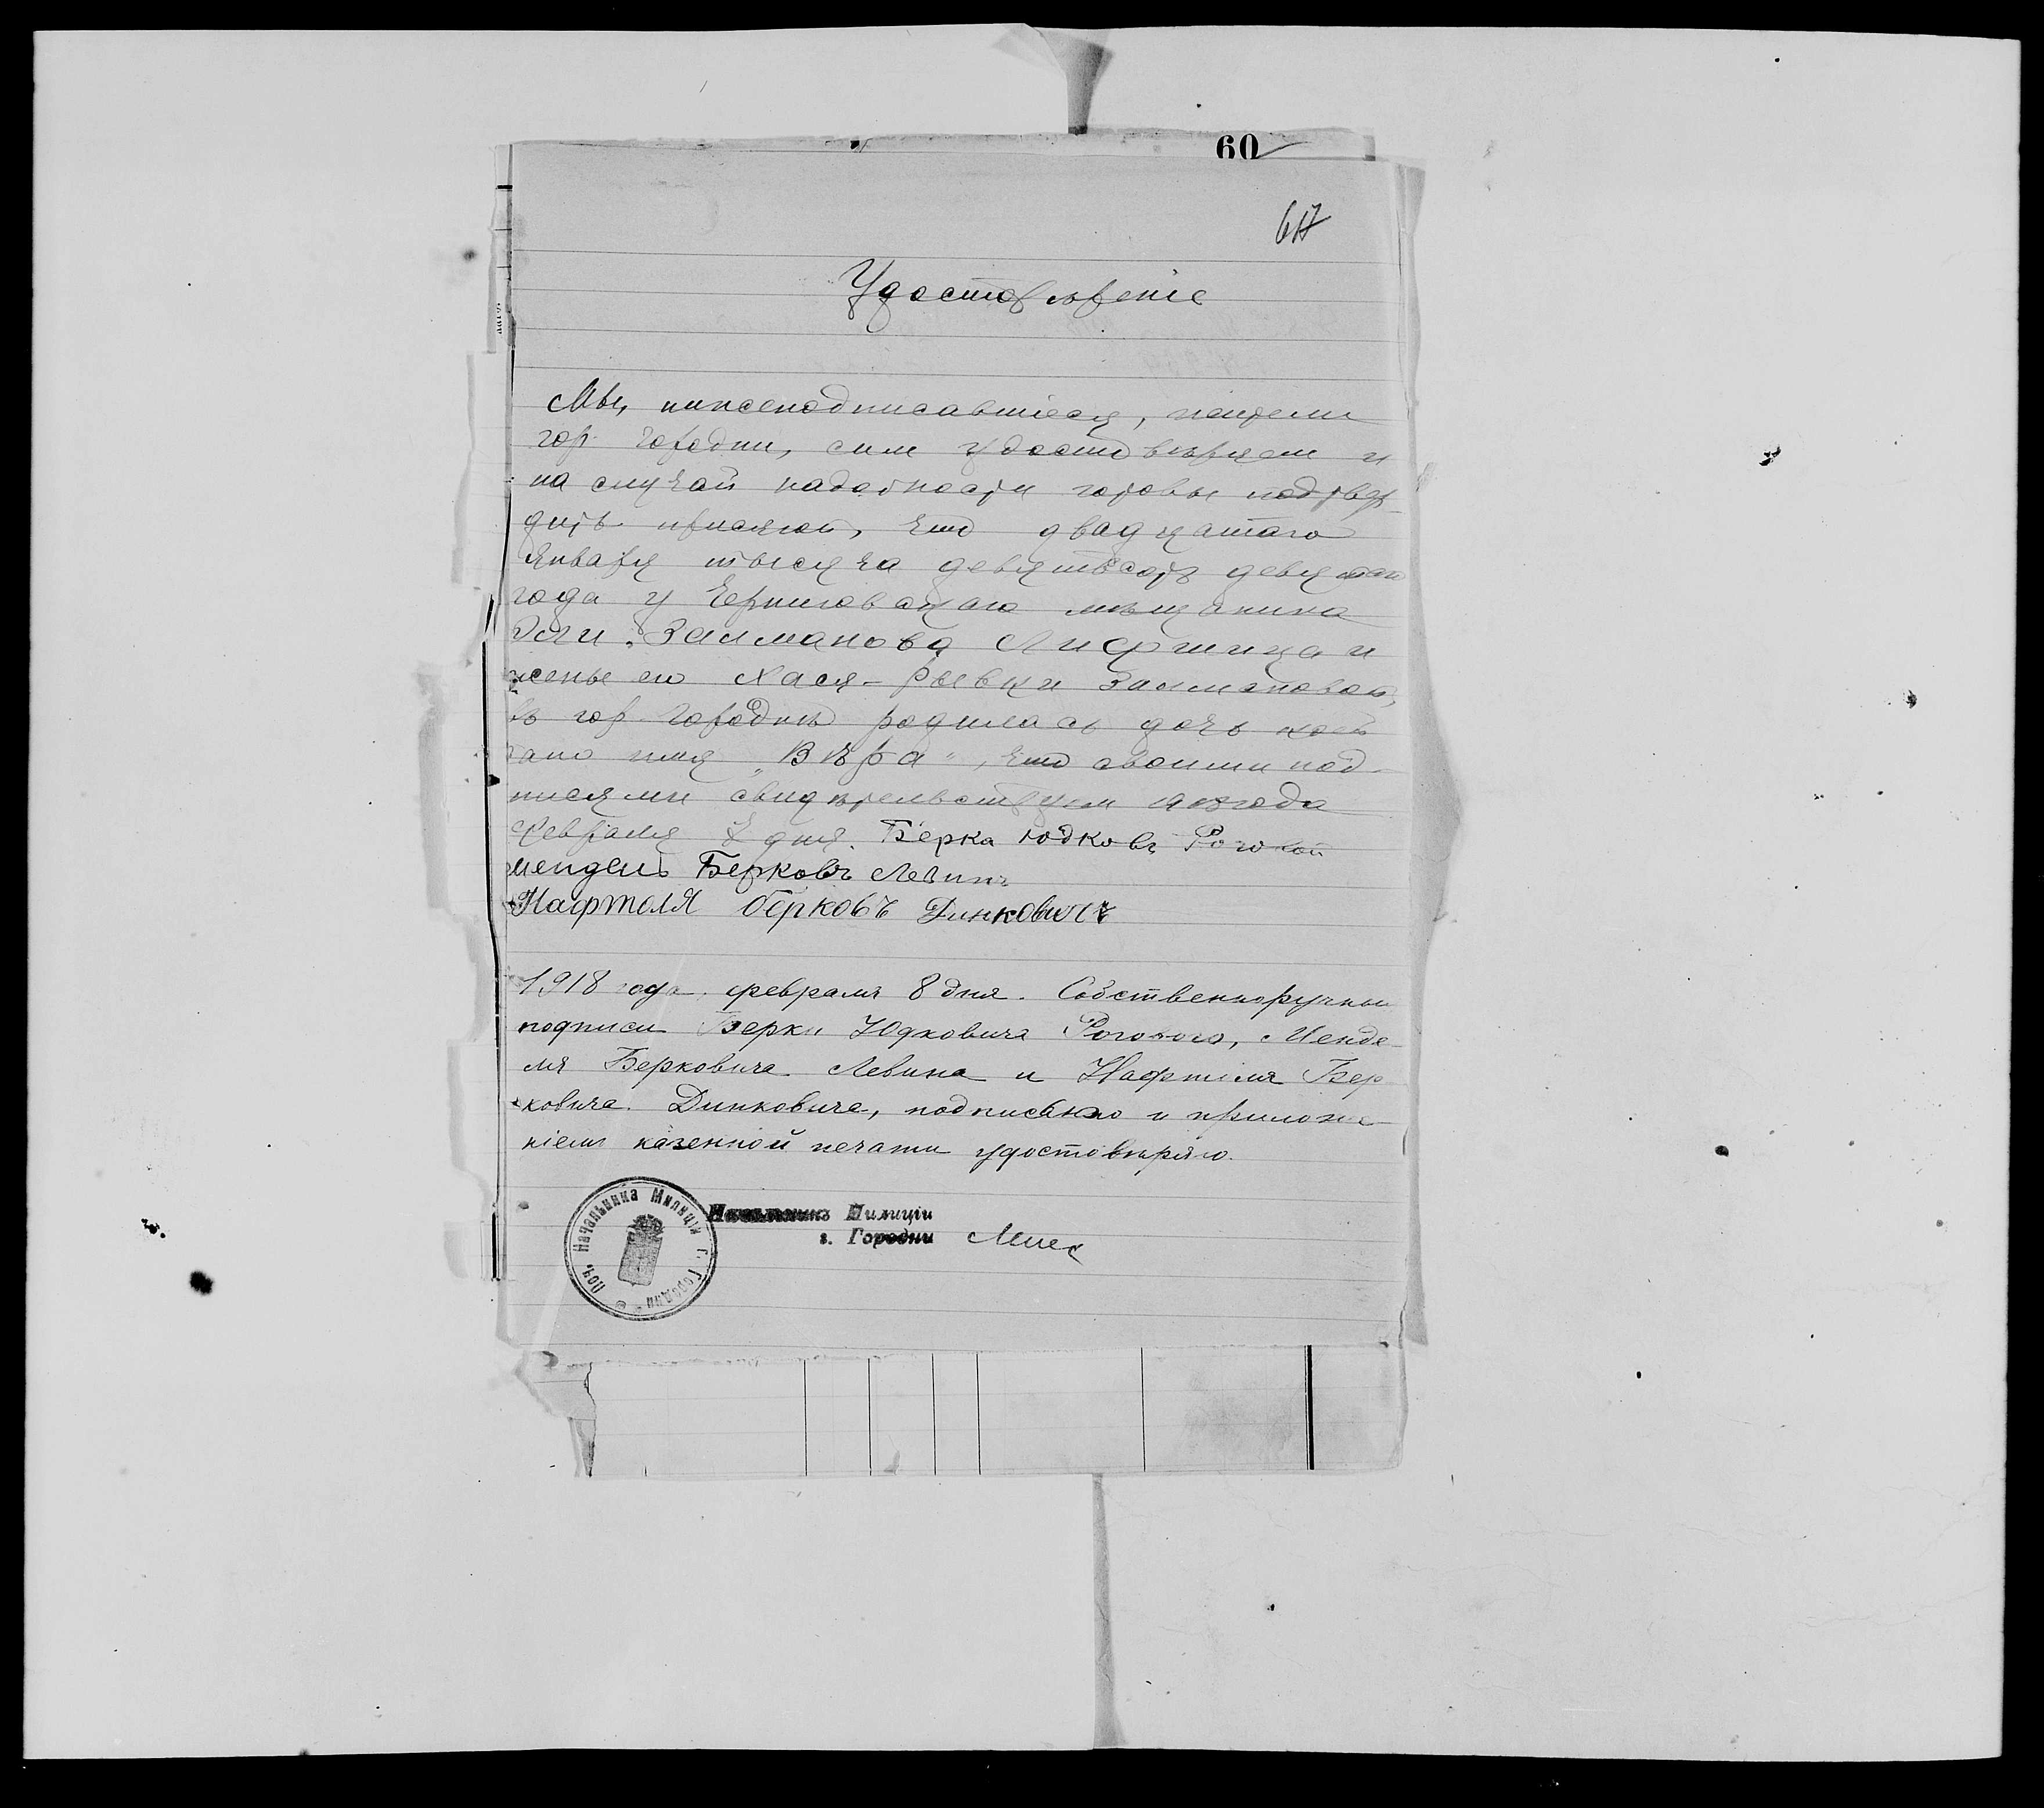 60
617
Удостовѣреніе
Мы, нижеподписавшіеся, жители
гор. Городни, сим удостовѣряем и
на случай надобности готовы подтвер-
дить присягой, что двадцатаго
Января тысяча девятьсотъ девятаго
года у Черниговскаго мѣщанина
Эли Залманова Лифшица и
жены его Хася-Рывки Залмановой,
въ гор. Городнѣ родилась дочь коей
дано имя „Вѣра", что своими под-
писями свидѣтельствуем 1918 года
Февраля 8 дня. Берка Юдковъ Роговой
мендель Берковъ Левинъ
Нафтоля берковъ Динковичъ
1918 года февраля 8 дня. Собственноручныя
подписи Берки Юдковича Рогового, Менде-
ля Берковича Левина и Нафтоля Бер
ковича Динковича, подписью и приложе-
ніем казенной печати удостовѣряю.
Начальникъ Милиціи
г. Городни
Печ. Начальника Милиціи г. Городни